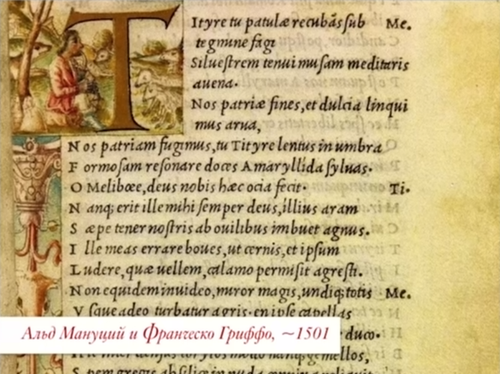 Tityre tu patulæ recubãs sub Me.
tegmine fagi
Siluestrem tenui musam meditaris
auena.
Nos patriæ fines, et dulcia linqui
mus arua,
Nos patriam fugimus, tu Tityre lentus in umbra
Formosam resonare doces Amaryllida syluas.
O Melibœe, deus nobis hæc ocia fecit. Ti.
Nanq; erit ille mihi semper deus, illius aram
Sæpe tener nostris ab ouilibus imbuet agnus.
Ille meas errare boues, ut cernis, et ipsum
Ludere, quæ uellem, calamo permisit agresti.
Non equidem inuideo, miror magis, undiq; totis Me.
Vsque adeo turbatur agris. en ipse capellas
Альд Мануций и Франческо Гриффо, ~1501 duco.